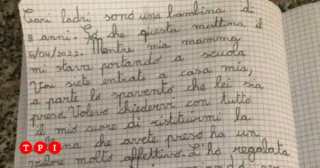 Cari ladri sono una bambina di
8 anni. So che questa mattina il
5/04/2022. Mentre mia mamma
mi stava portando a scuola
Voi siete entrati a casa mia,
a parte lo spavento che lei sia
presa. Volevo chiedervi con tutto
il mio cuore di restituirmi la
che avete preso ha un
valore molto affettivo. L'ho regalata
TPI